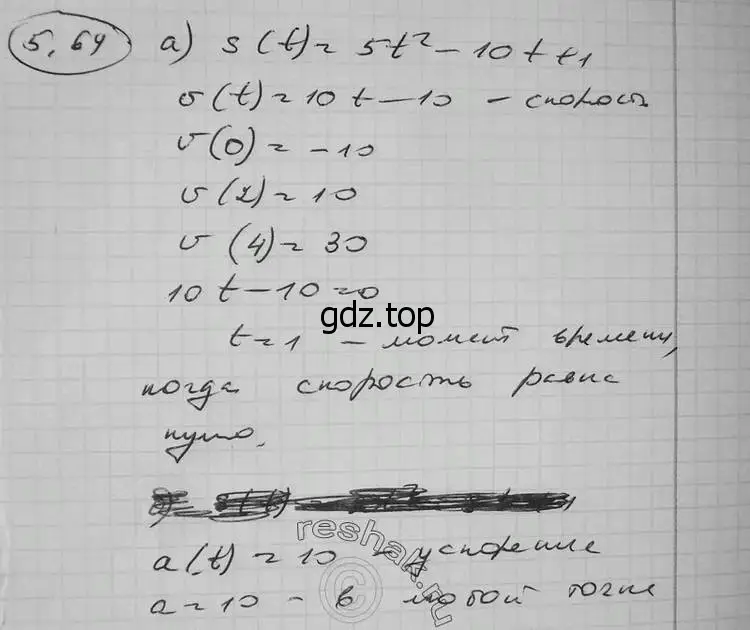 5.64 а) s(t) = 5t² - 10t + 1
v(t) = 10t - 10 - скорость
v(0) = -10
v(2) = 10
v(4) = 30
10t - 10 = 0
gdz.top
t = 1 - момент времени,
когда скорость равна
нулю.
reshak.ru
©
a(t) = 10 - ускорение
a = 10 - в любой точке